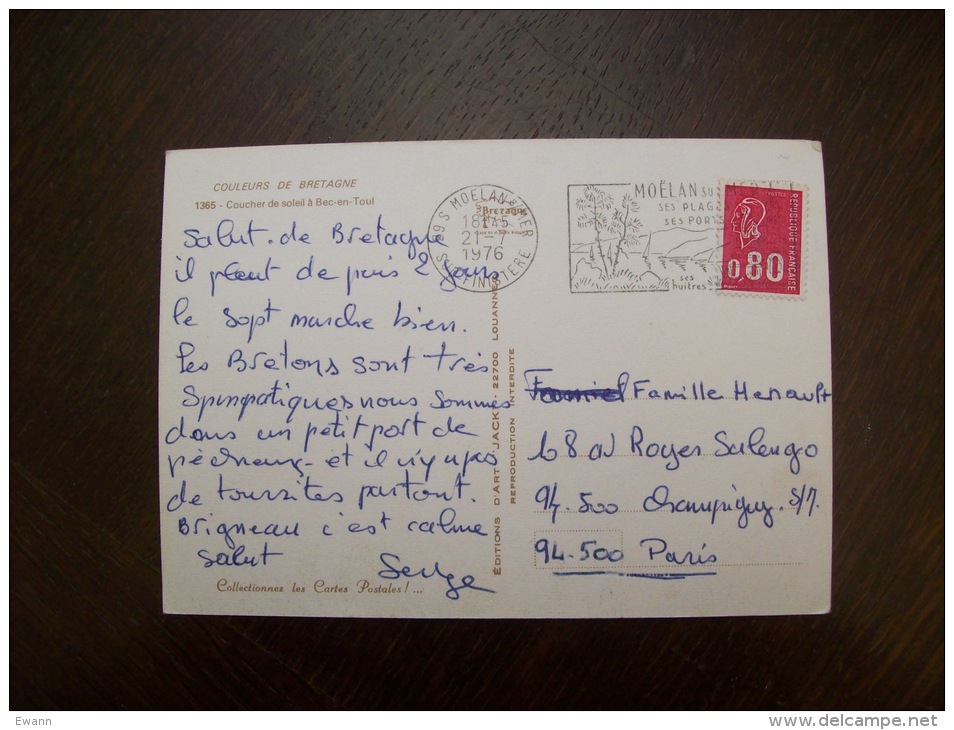 COULEURS DE BRETAGNE
1365 - Coucher de soleil à Bec-en-Toul
Salut. de Bretagne
il pleut de puis 2 jours
le sopt marche bien.
les Bretons sont très
Spimpatiques nous sommes
dans un petit port de
pêcheurs - et il n'y a pas
de toursites partout.
Brigneau c'est calme
Salut
Serge
Collectionnez les Cartes Postales ! ...
ÉDITIONS D'ART "JACK" 22700 LOUANNEC
REPRODUCTION INTERDITE
29S MOELAN S/MER
18H45
21-7
1976
SUD-FINISTERE
Bretagne
MOËLAN SUR
SES PLAGES
SES PORTS
ses
huîtres
POSTES
REPUBLIQUE FRANÇAISE
0,80
Famille Henault
68 av Roger Salengo
94.500 Champigny. s/m.
94.500 Paris
Ewann
www.delcampe.net